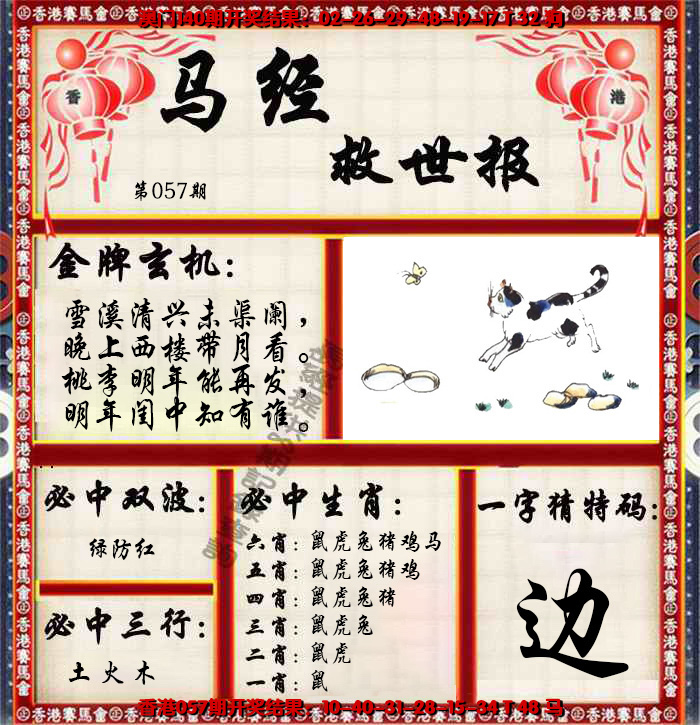 澳门140期开奖结果：02-26-29-48-19-17T32狗
香港賽馬會
香
港
马经
救世报
第057期
金牌玄机：
雪溪清兴未渠阑，
晚上西楼带月看。
桃李明年能再发，
明年闺中知有谁。
必中双波：
绿防红
必中三行：
土火木
必中生肖：
六肖：鼠虎兔猪鸡马
五肖：鼠虎兔猪鸡
四肖：鼠虎兔猪
三肖：鼠虎兔
二肖：鼠虎
一肖：鼠
一字猜特码：
边
香港057期开奖结果：10-40-31-28-15-34T48马